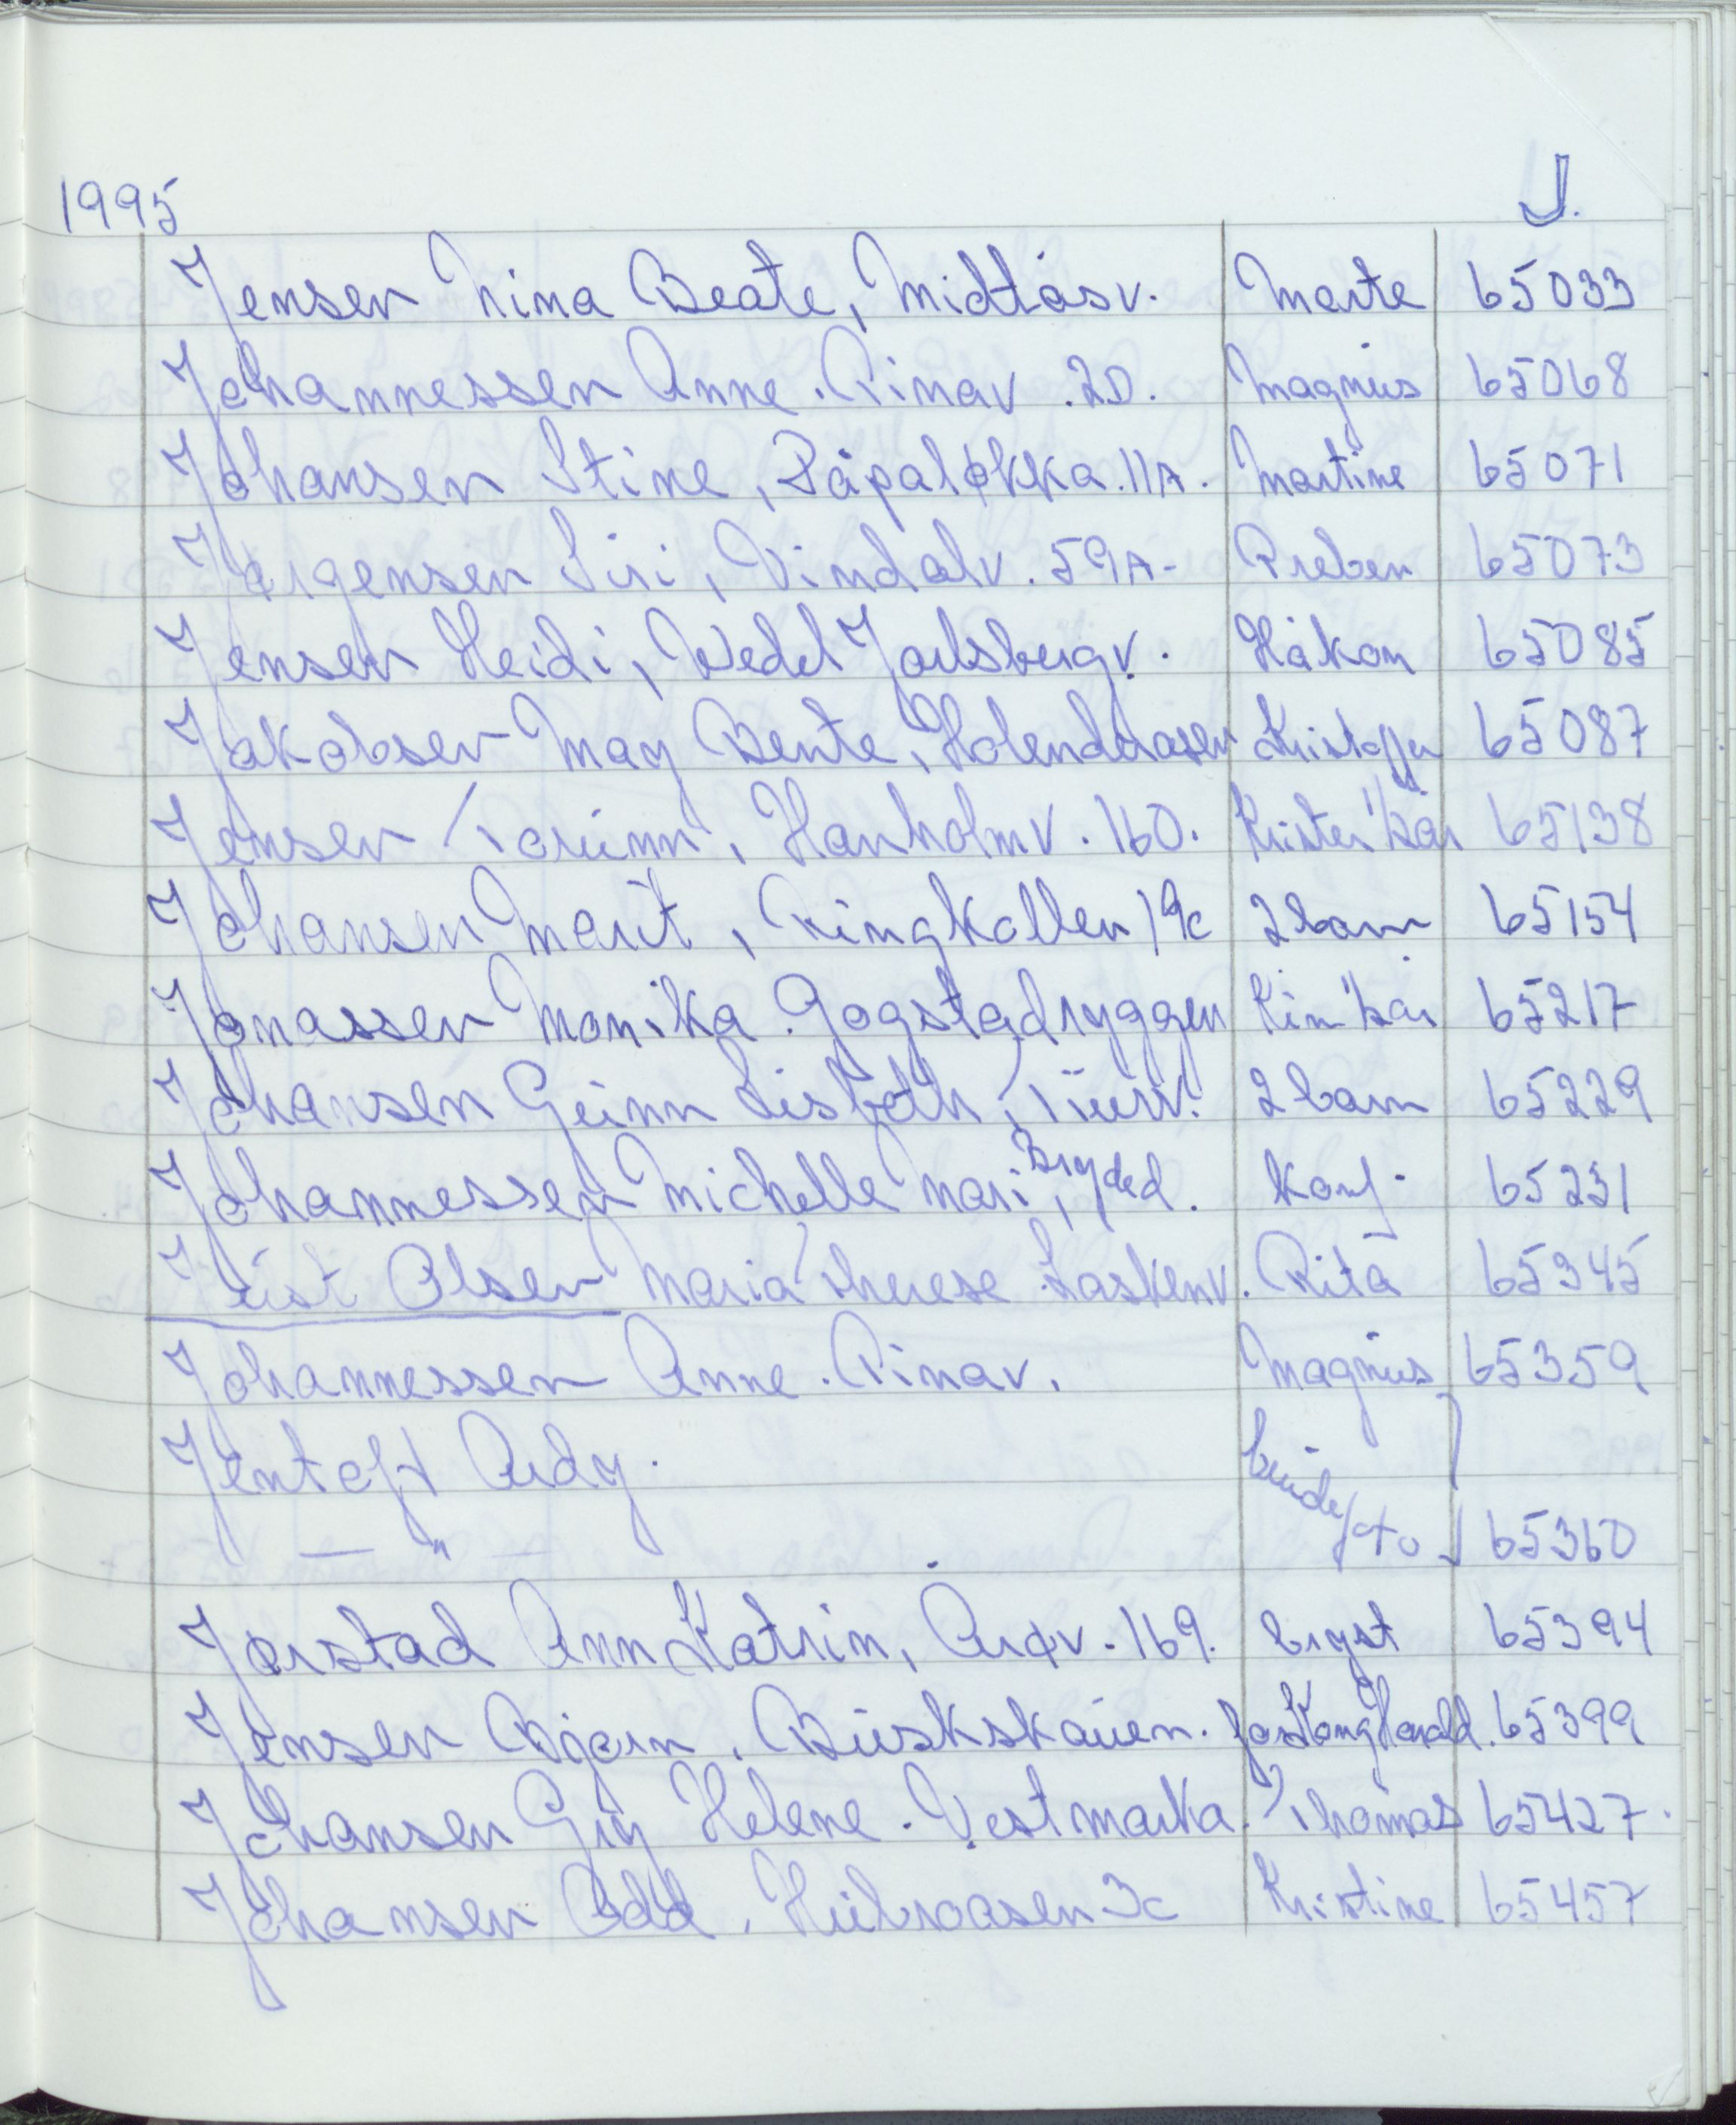 1995 J.
Jensen Nina Beate, Midtåsv. Marte 65033
Johannessen Anne. Rinav. 2D. Magnus 65068
Johansen Stine, Påpaløkka. 11A. Martine 65071
Jørgensen Siri, Vindalv. 59A- Preben 65073
Jensen Heidi, Wedel Jarlsbergv. Håkon 65085
Jakobsen May Bente, Kristoffer 65087
Jensen Torunn, Hanholmv. 16D. Krister 1/2 år 65138
Johansen Marit, Ringkollen 19c 2 barn 65154
Jonassen Monika. Gogstadryggen Kim 1/2 år 65217
Johansen Gunn Lisbeth, 2 barn 65229
Johannessen Michelle Mari, Bryded. Konf. 65231
Just Olsen Maria Therese Laskenv. Rita 65345
Johannessen Anne. Rinav. Magnus 65359
Jentoft Ardy. brude
— " — foto 65360
Jørstad Ann Katrin, Arøv. 169. bryst 65394
Jensen Bjørn. Buskskauen. for Kong Harald. 65399
Johansen Gry Helene. Vestmarka. Thomas 65427.
Johansen Odd. Hubroåsen 3c Kristine 65457